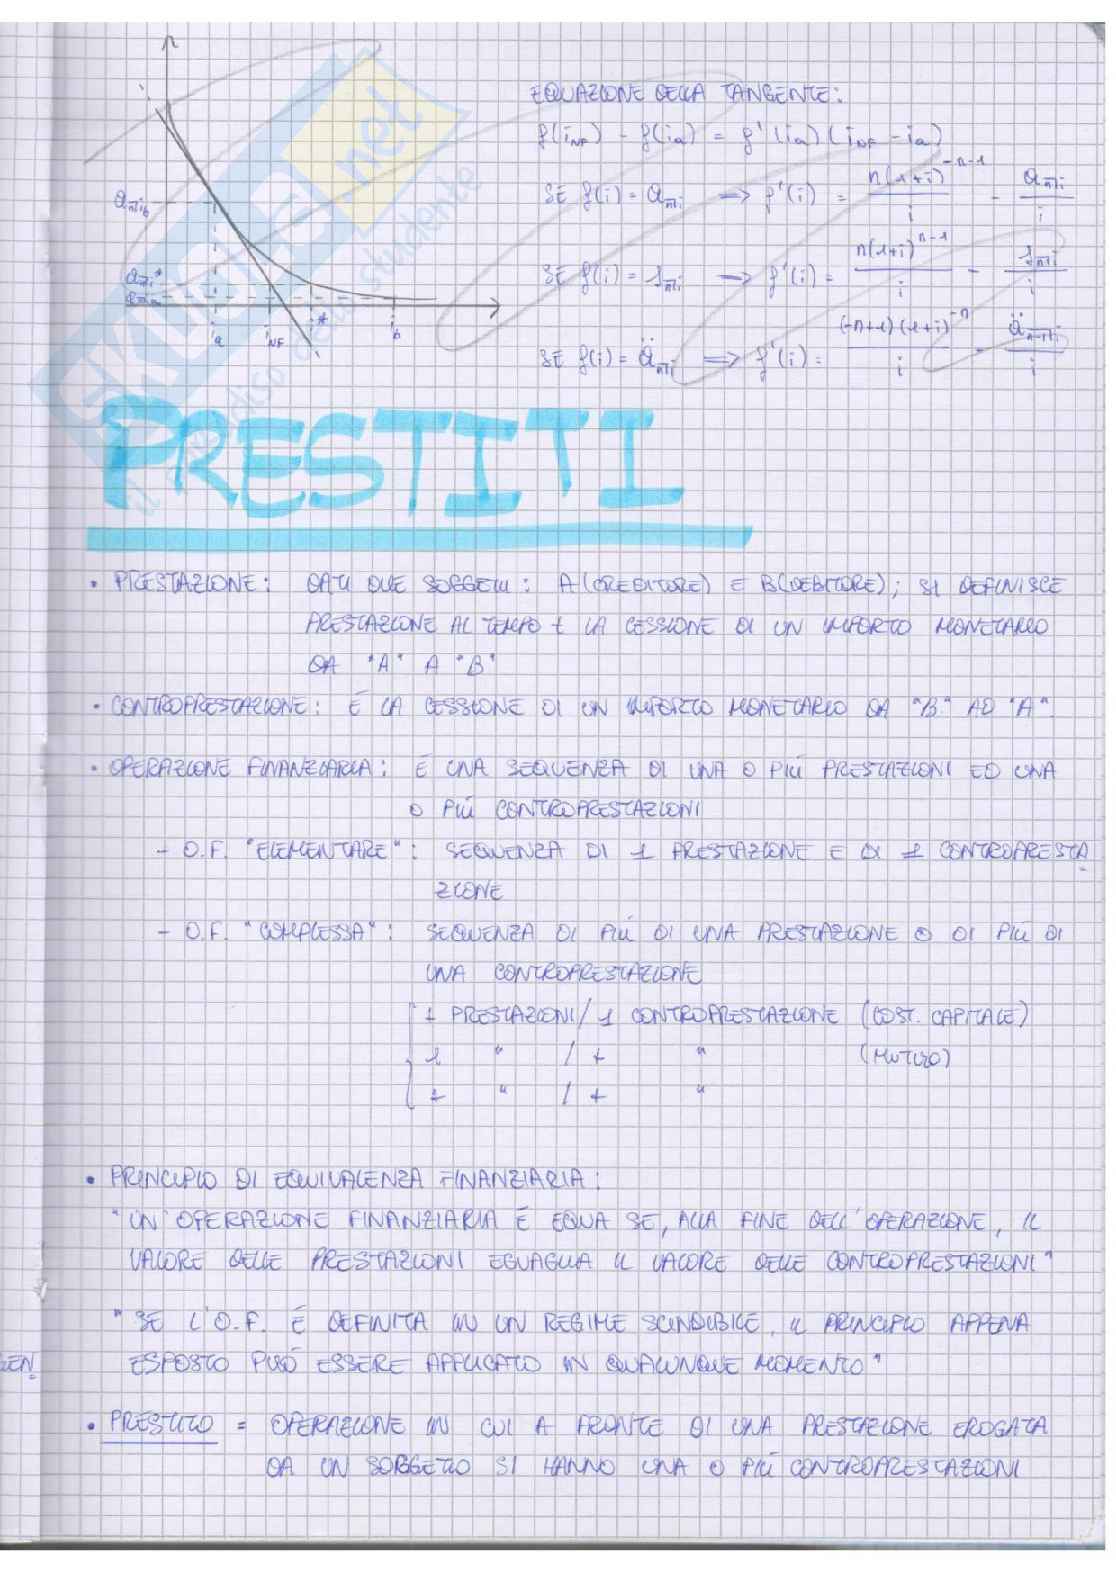 EQUAZIONE DELLA TANGENTE:
f(i_NF) - f(i_a) = f'(i_a)(i_NF - i_a)
SE f(i) = a_n̅|i ⟹ f'(i) = n(1+i)^(-n-1) / i - a_n̅|i / i
SE f(i) = s_n̅|i ⟹ f'(i) = n(1+i)^(n-1) / i - s_n̅|i / i
SE f(i) = ä_n̅|i ⟹ f'(i) = (-n+1)(1+i)^(-n) / i - ä_n-1|i / i
i_a i_NF i* i_b
SKUOLA.net
il paradiso dello studente
PRESTITI
• PRESTAZIONE: DATI DUE SOGGETTI: A (CREDITORE) E B (DEBITORE); SI DEFINISCE
PRESTAZIONE AL TEMPO t LA CESSIONE DI UN IMPORTO MONETARIO
DA "A" A "B"
• CONTROPRESTAZIONE: È LA CESSIONE DI UN IMPORTO MONETARIO DA "B" AD "A".
• OPERAZIONE FINANZIARIA: È UNA SEQUENZA DI UNA O PIÙ PRESTAZIONI ED UNA
O PIÙ CONTROPRESTAZIONI
- O.F. "ELEMENTARE": SEQUENZA DI 1 PRESTAZIONE E DI 1 CONTROPRESTA
ZIONE
- O.F. "COMPLESSA": SEQUENZA DI PIÙ DI UNA PRESTAZIONE O DI PIÙ DI
UNA CONTROPRESTAZIONE
+ PRESTAZIONI / 1 CONTROPRESTAZIONE (COST. CAPITALE)
1 " / + " (MUTUO)
+ " / + "
• PRINCIPIO DI EQUIVALENZA FINANZIARIA:
"UN'OPERAZIONE FINANZIARIA È EQUA SE, ALLA FINE DELL'OPERAZIONE, IL
VALORE DELLE PRESTAZIONI EGUAGLIA IL VALORE DELLE CONTROPRESTAZIONI"
"SE L'O.F. È DEFINITA IN UN REGIME SCINDIBILE, IL PRINCIPIO APPENA
ESPOSTO PUÒ ESSERE APPLICATO IN QUALUNQUE MOMENTO"
• PRESTITO = OPERAZIONE IN CUI A FRONTE DI UNA PRESTAZIONE EROGATA
DA UN SOGGETTO SI HANNO UNA O PIÙ CONTROPRESTAZIONI